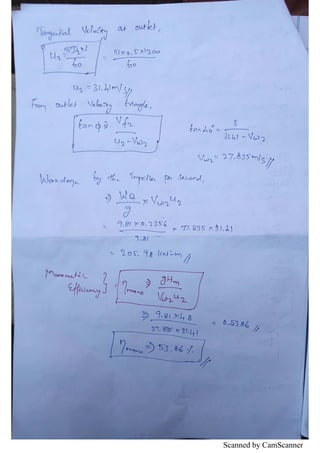 Tangential Velocity at outlet,
U2 = πD2N / 60 = π×0.5×1200 / 60
U2 = 31.41m/s //
From outlet Velocity triangle,
tan φ = Vf2 / U2-Vw2
tan 40° = 3 / 31.41 - Vw2
Vw2 = 27.835m/s //
Workdone by the Impeller per Second,
⇒ WQ / g × Vw2 U2
= 9.81×0.2356 / 9.81 × 27.835 × 31.41
= 205.98 kN-m //
Manometric Efficiency } ηmano ⇒ gHm / Vw2 U2
⇒ 9.81×48 / 27.835×31.41 = 0.5386 //
ηmano ⇒ 53.86 % //
Scanned by CamScanner